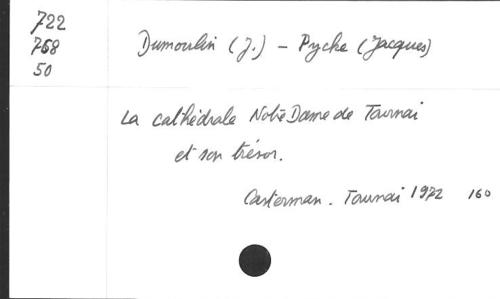 722
768
50
Dumoulin (J.) - Pycke (Jacques)
La cathédrale Notre Dame de Tournai
et son trésor.
Casterman. Tournai 1972 160